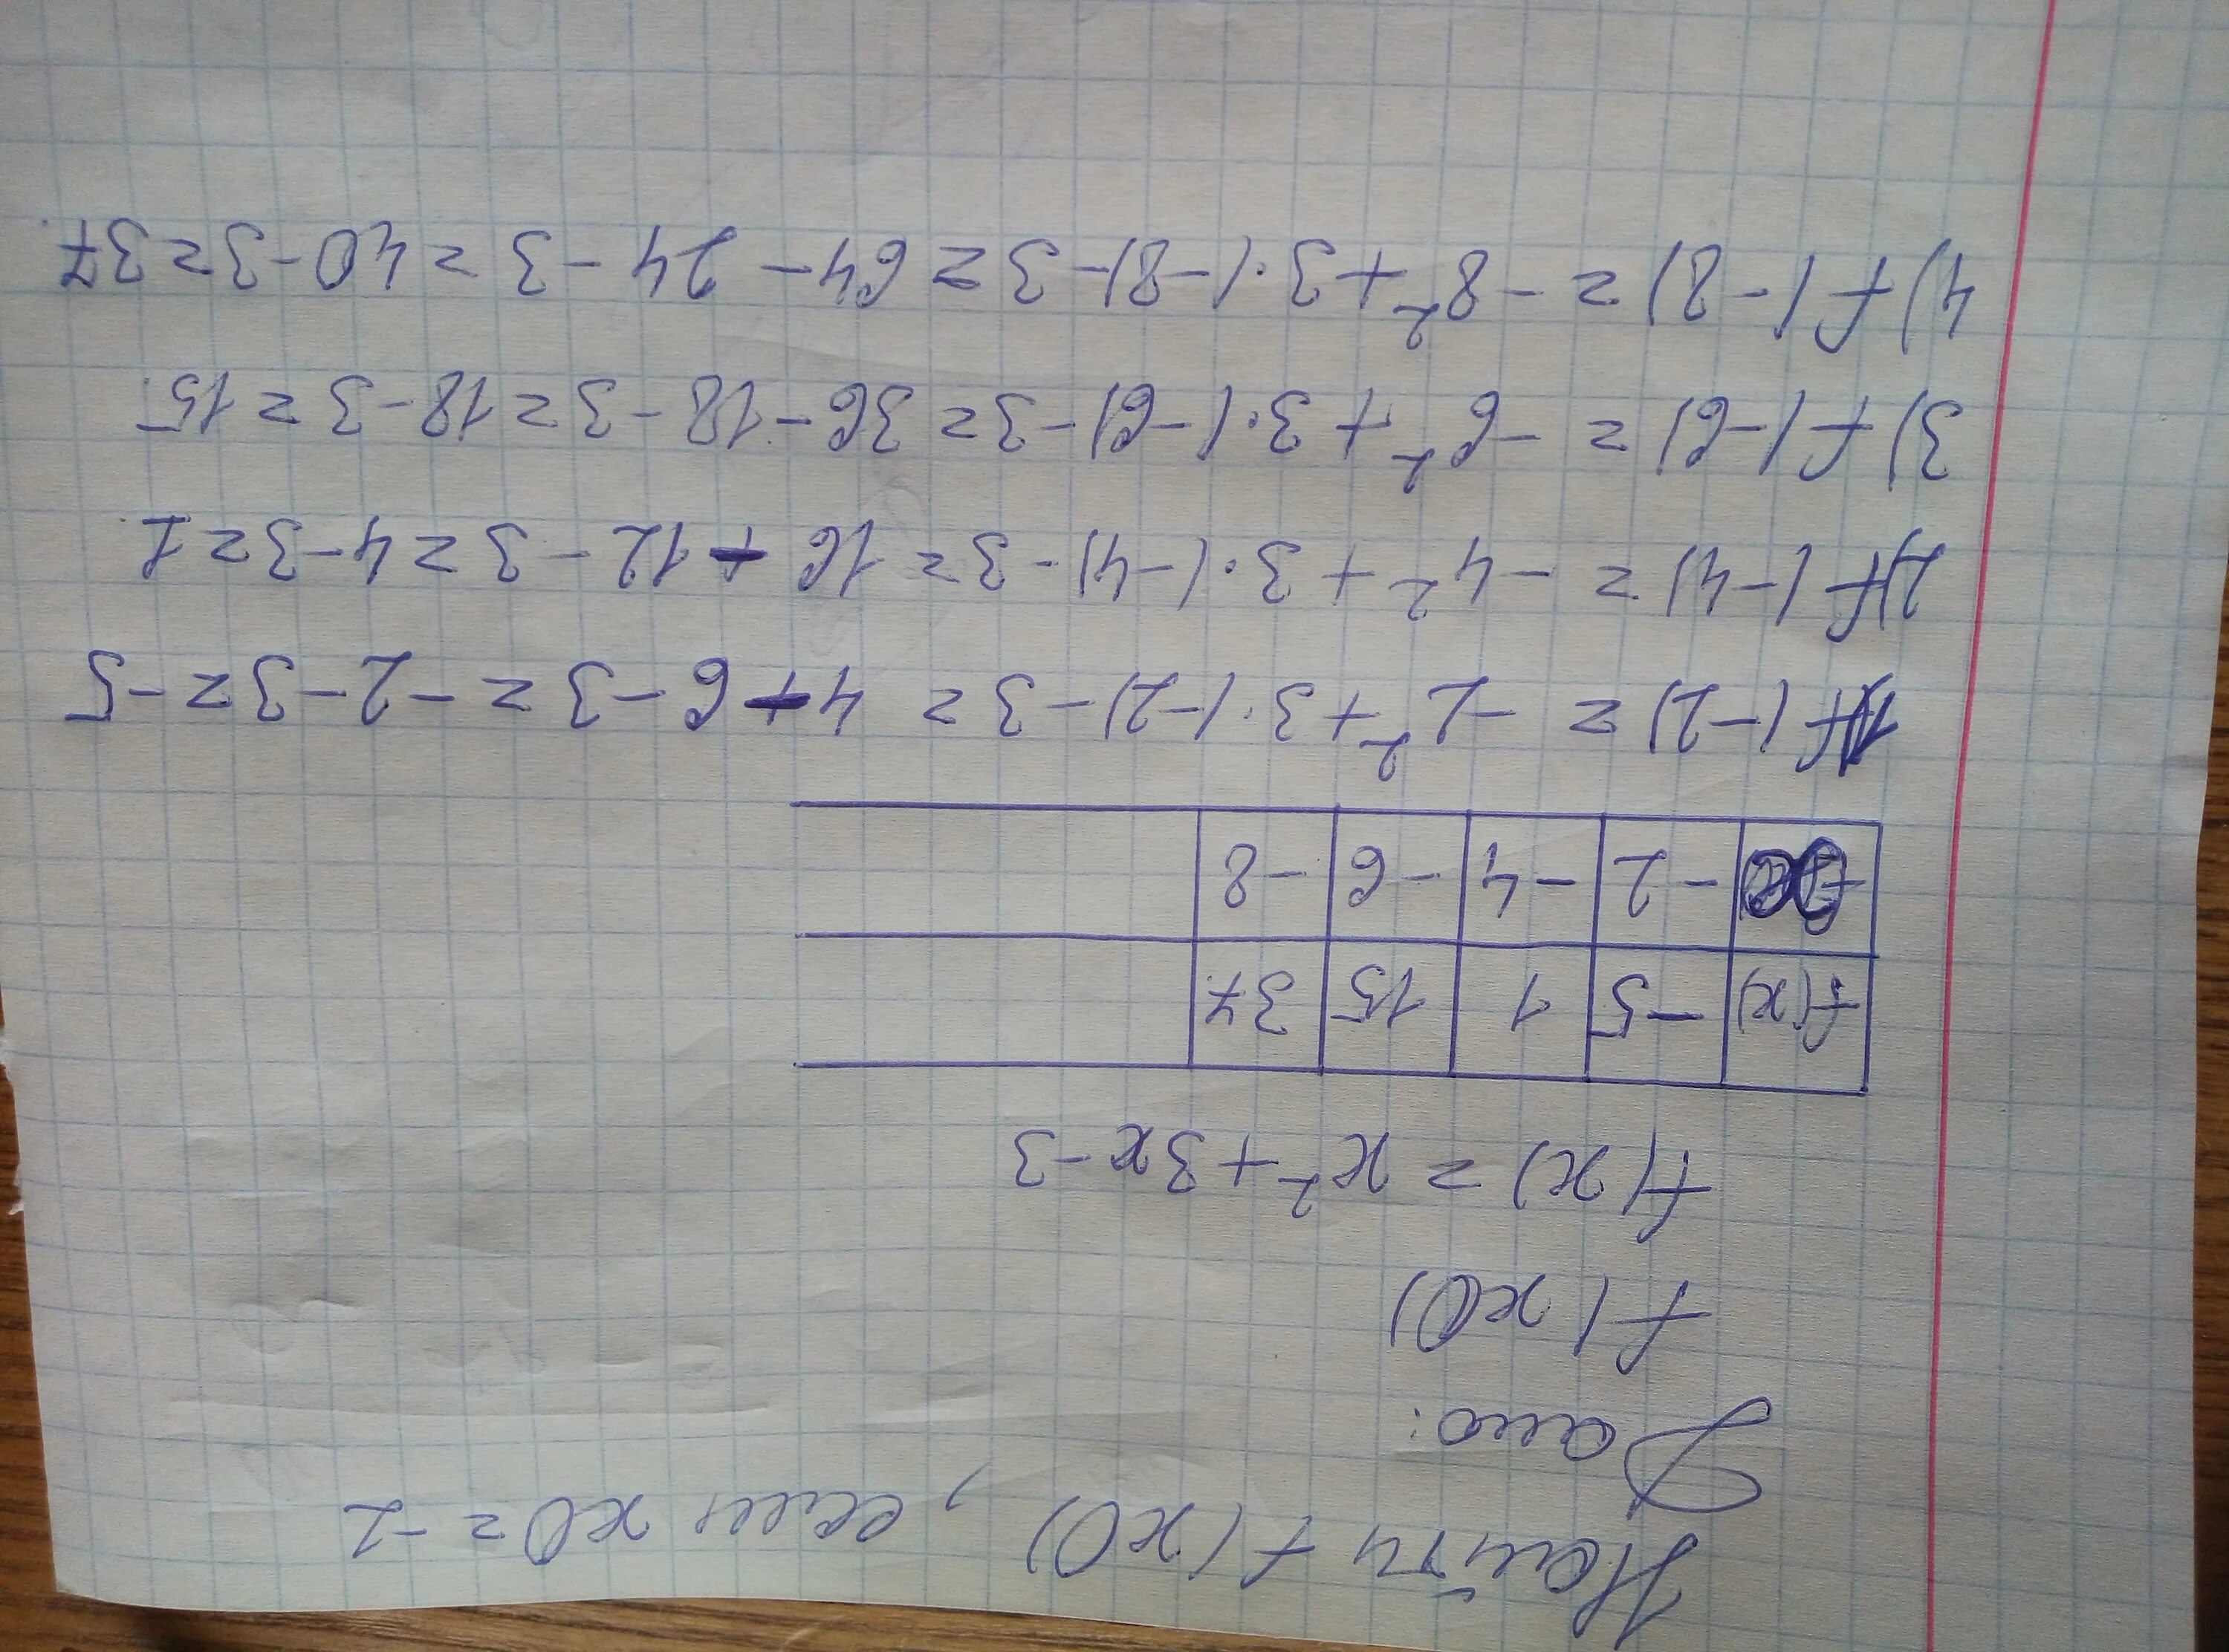 Найти f(x0), если x0=-2
Дано:
f(x0)
f(x) = x²+3x-3
f(x) -5 1 15 37
-2 -4 -6 -8
1)f(-2) = -2²+3·(-2)-3 = 4-6-3 = -2-3=-5
2)f(-4) = -4²+3·(-4)-3= 16-12-3=4-3=1
3)f(-6) = -6²+3·(-6)-3= 36-18-3=18-3=15
4)f(-8) = -8²+3·(-8)-3= 64-24-3=40-3=37